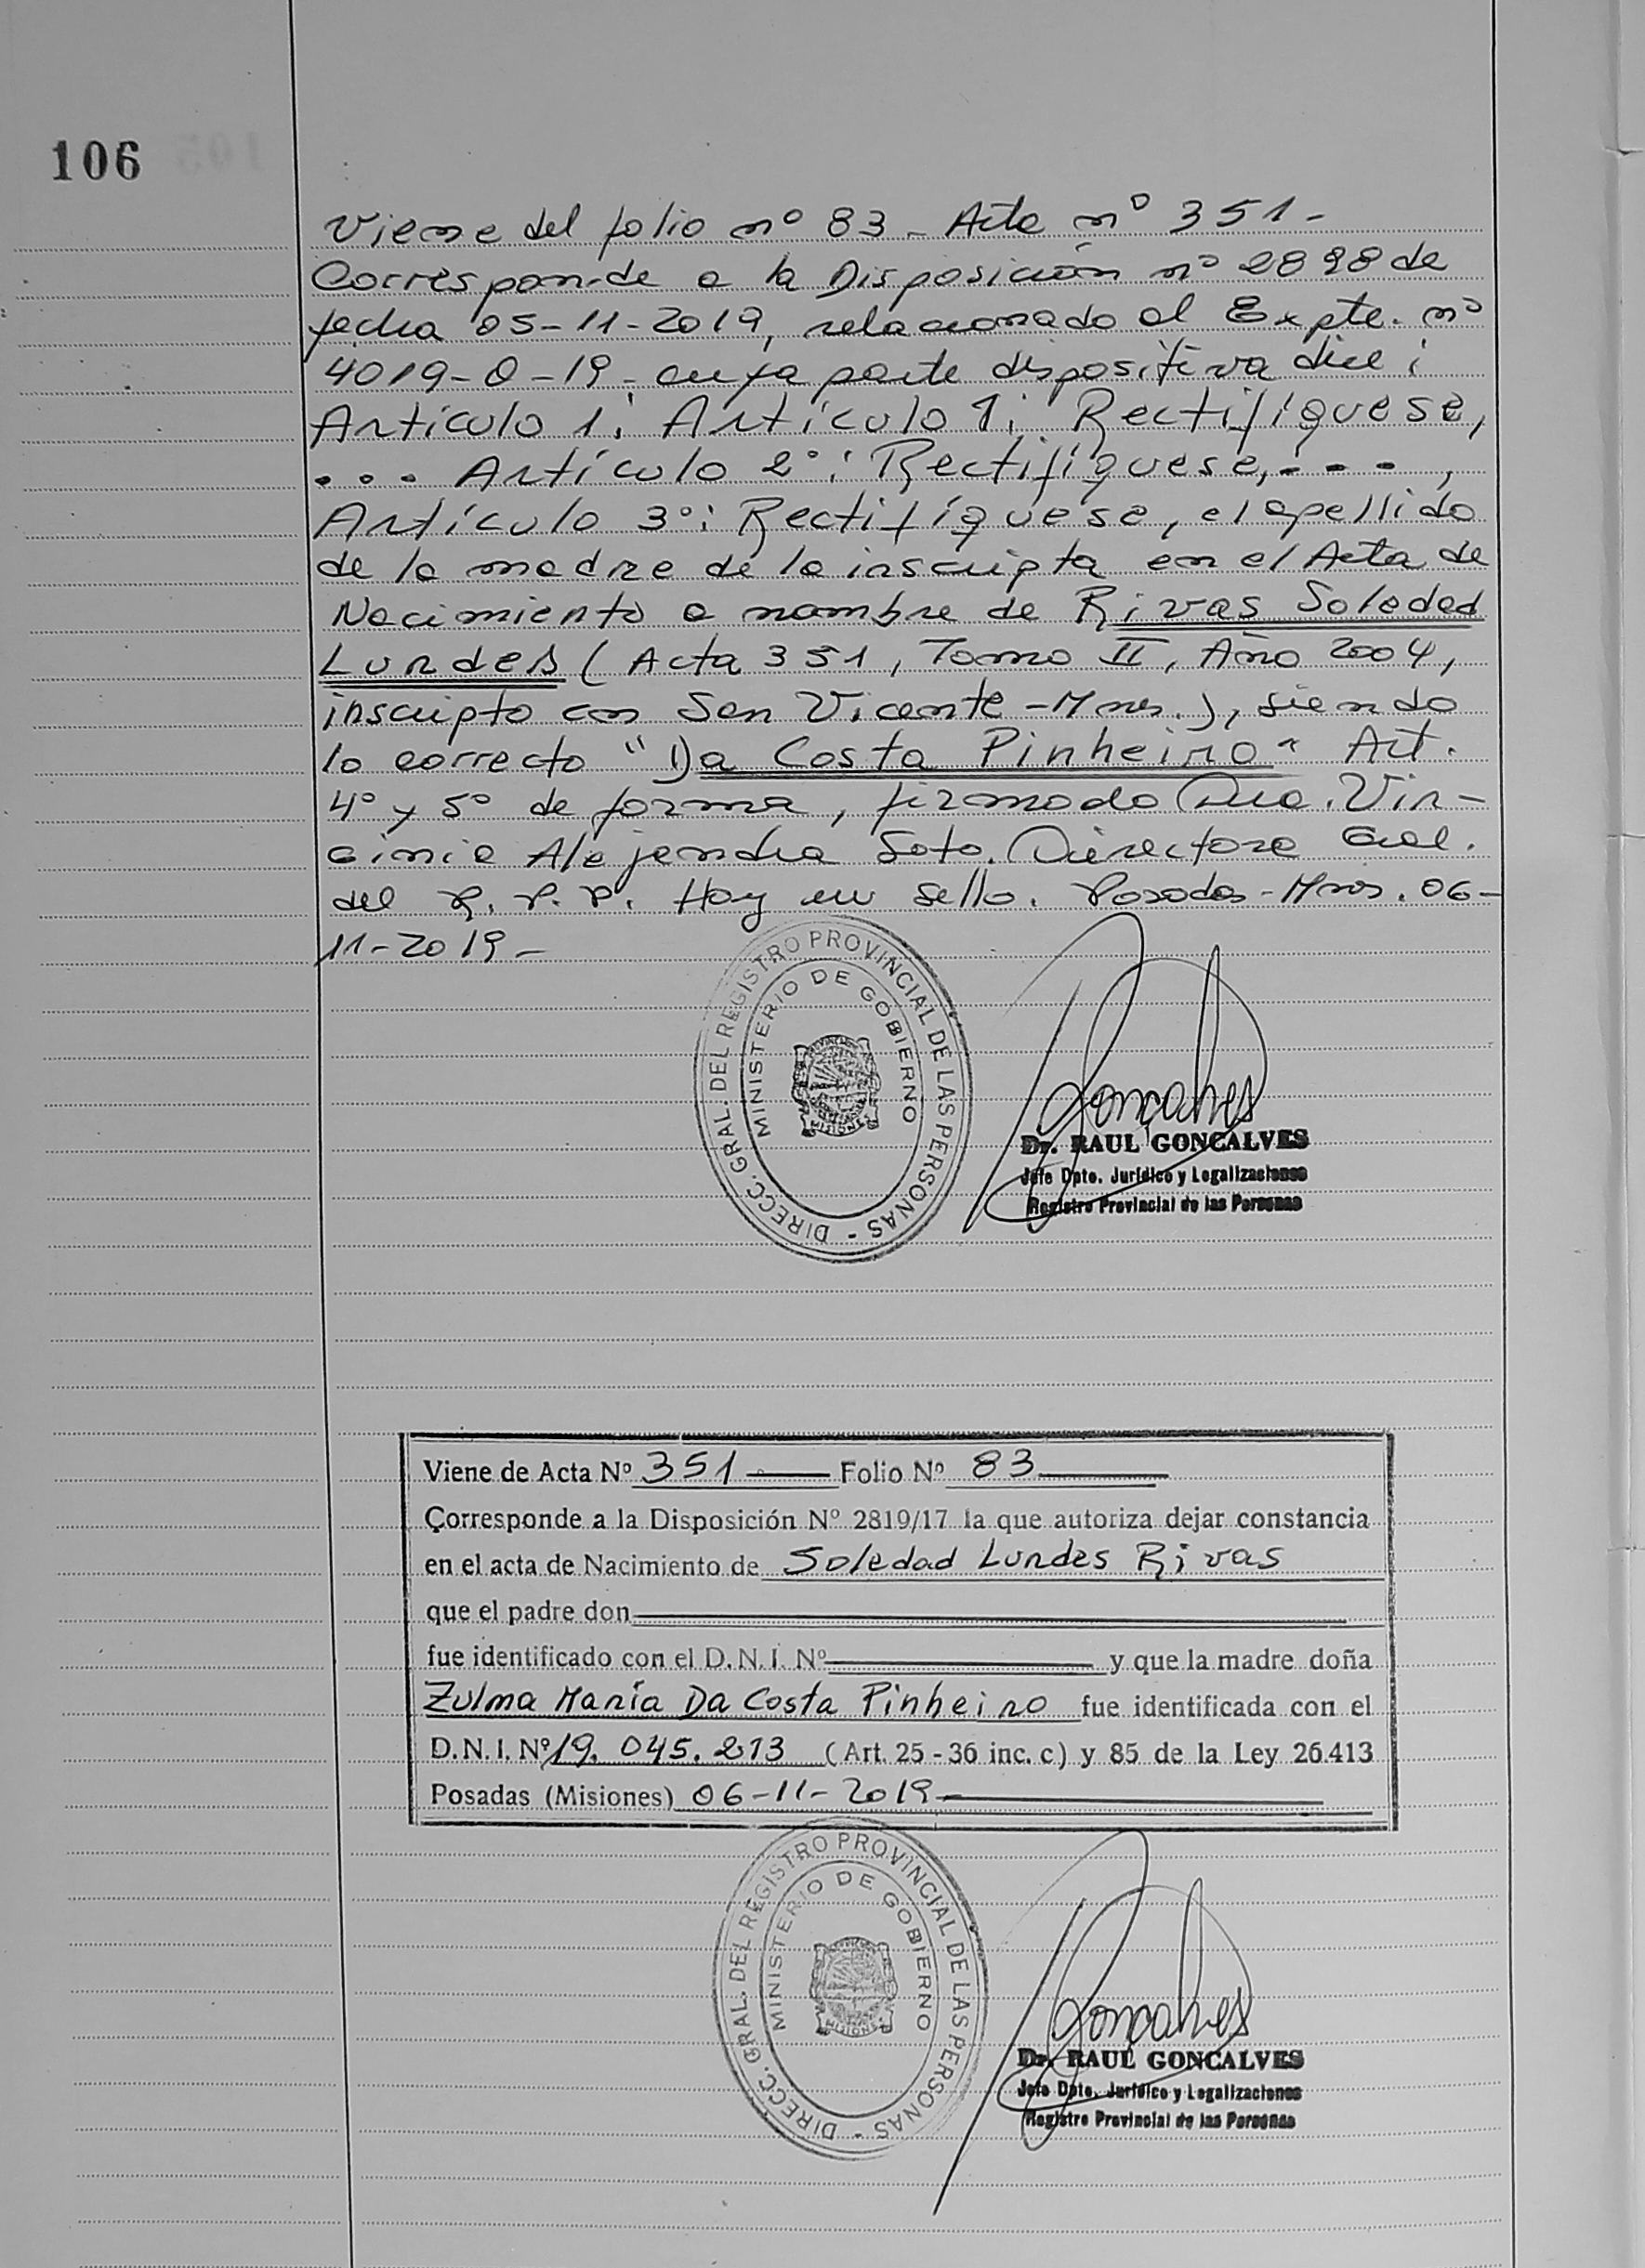 106
Viene del folio nº 83 - Acta nº 351 -
Corresponde a la Disposición nº 2898 de
fecha 05-11-2019, relacionado al Expte. nº
4019-O-19- cuya parte dispositiva dice:
Artículo 1: Artículo 1: Rectifíquese,
... Artículo 2º: Rectifíquese, ...,
Artículo 3º: Rectifíquese, el apellido
de la madre de la inscripta en el Acta de
Nacimiento a nombre de Rivas Soledad
Lurdes (Acta 351, Tomo II, Año 2004,
inscripto en San Vicente - Mnes.), siendo
lo correcto "Da Costa Pinheiro" Art.
4º y 5º de forma, firmado Dra. Vir-
ginia Alejandra Soto. Directora Gral.
del R.P.P. Hay un sello. Posadas - Mnes. 06-
11-2019 -
DIRECC. GRAL. DEL REGISTRO PROVINCIAL DE LAS PERSONAS -
MINISTERIO DE GOBIERNO
MISIONES
Goncalves
Dr. RAUL GONCALVES
Jefe Dpto. Jurídico y Legalizaciones
Registro Provincial de las Personas
Viene de Acta Nº 351 Folio Nº 83
Corresponde a la Disposición Nº 2819/17 la que autoriza dejar constancia
en el acta de Nacimiento de Soledad Lurdes Rivas
que el padre don
fue identificado con el D.N.I. Nº y que la madre doña
Zulma María Da Costa Pinheiro fue identificada con el
D.N.I. Nº 19.045.213 (Art. 25 - 36 inc. c) y 85 de la Ley 26.413
Posadas (Misiones) 06-11-2019
DIRECC. GRAL. DEL REGISTRO PROVINCIAL DE LAS PERSONAS -
MINISTERIO DE GOBIERNO
MISIONES
Goncalves
Dr. RAUL GONCALVES
Jefe Dpto. Jurídico y Legalizaciones
Registro Provincial de las Personas